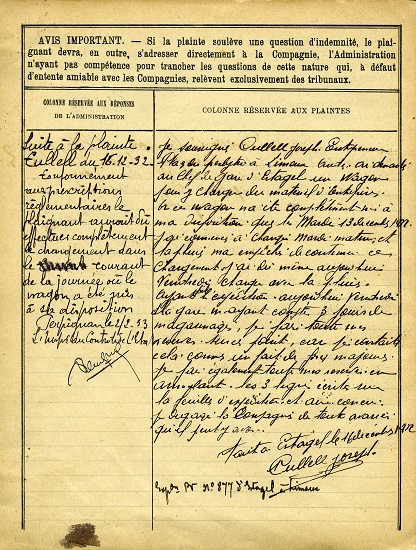 AVIS IMPORTANT. — Si la plainte soulève une question d'indemnité, le plai-
gnant devra, en outre, s'adresser directement à la Compagnie, l'Administration
n'ayant pas compétence pour trancher les questions de cette nature qui, à défaut
d'entente amiable avec les Compagnies, relèvent exclusivement des tribunaux.
COLONNE RÉSERVÉE AUX RÉPONSES
DE L'ADMINISTRATION
Suite à la plainte
Cullell du 16.12.32
Conformément
aux prescriptions
réglementaires le
plaignant aurait dû
effectuer complètement
le chargement dans
le courant
de la journée où le
wagon a été mis
à sa disposition
Perpignan le 2/2.33
L'Insp. du Contrôle de l'Etat
COLONNE RÉSERVÉE AUX PLAINTES
Je soussigné Cullell Joseph Entrepreneur
à Limoux Aude. ai demandé
au Chef de Gare d'Estagel un Wagon
pour Charger du materiel d'Entreprise.
ce wagon na été complètement mis à
ma disposition que le Mardi 13 decembre 1932
j'ai commencé à Charger Mardi matin, et
la pluie ma empeché de continuer ce
Chargement j'ai dû même aujourd'hui
Vendredi Charger avec la pluie.
Ayant l'expedition aujourd'hui Vendredi
le gare m ayant compté 3 jours de
magasinage, je fais toute mes
reserves sur ce point, car je
cela comme un fait de force majeure
je fais également toute mes reserves en
les 3 ligne écrite sur
la feuille d'expédition et
je degage la Compagnie de tout avarie
qu'il peut y avoir
Fait à Estagel le 16 décembre 1932
Cullell Joseph.
PV N° 877 d'Estagel à Limoux